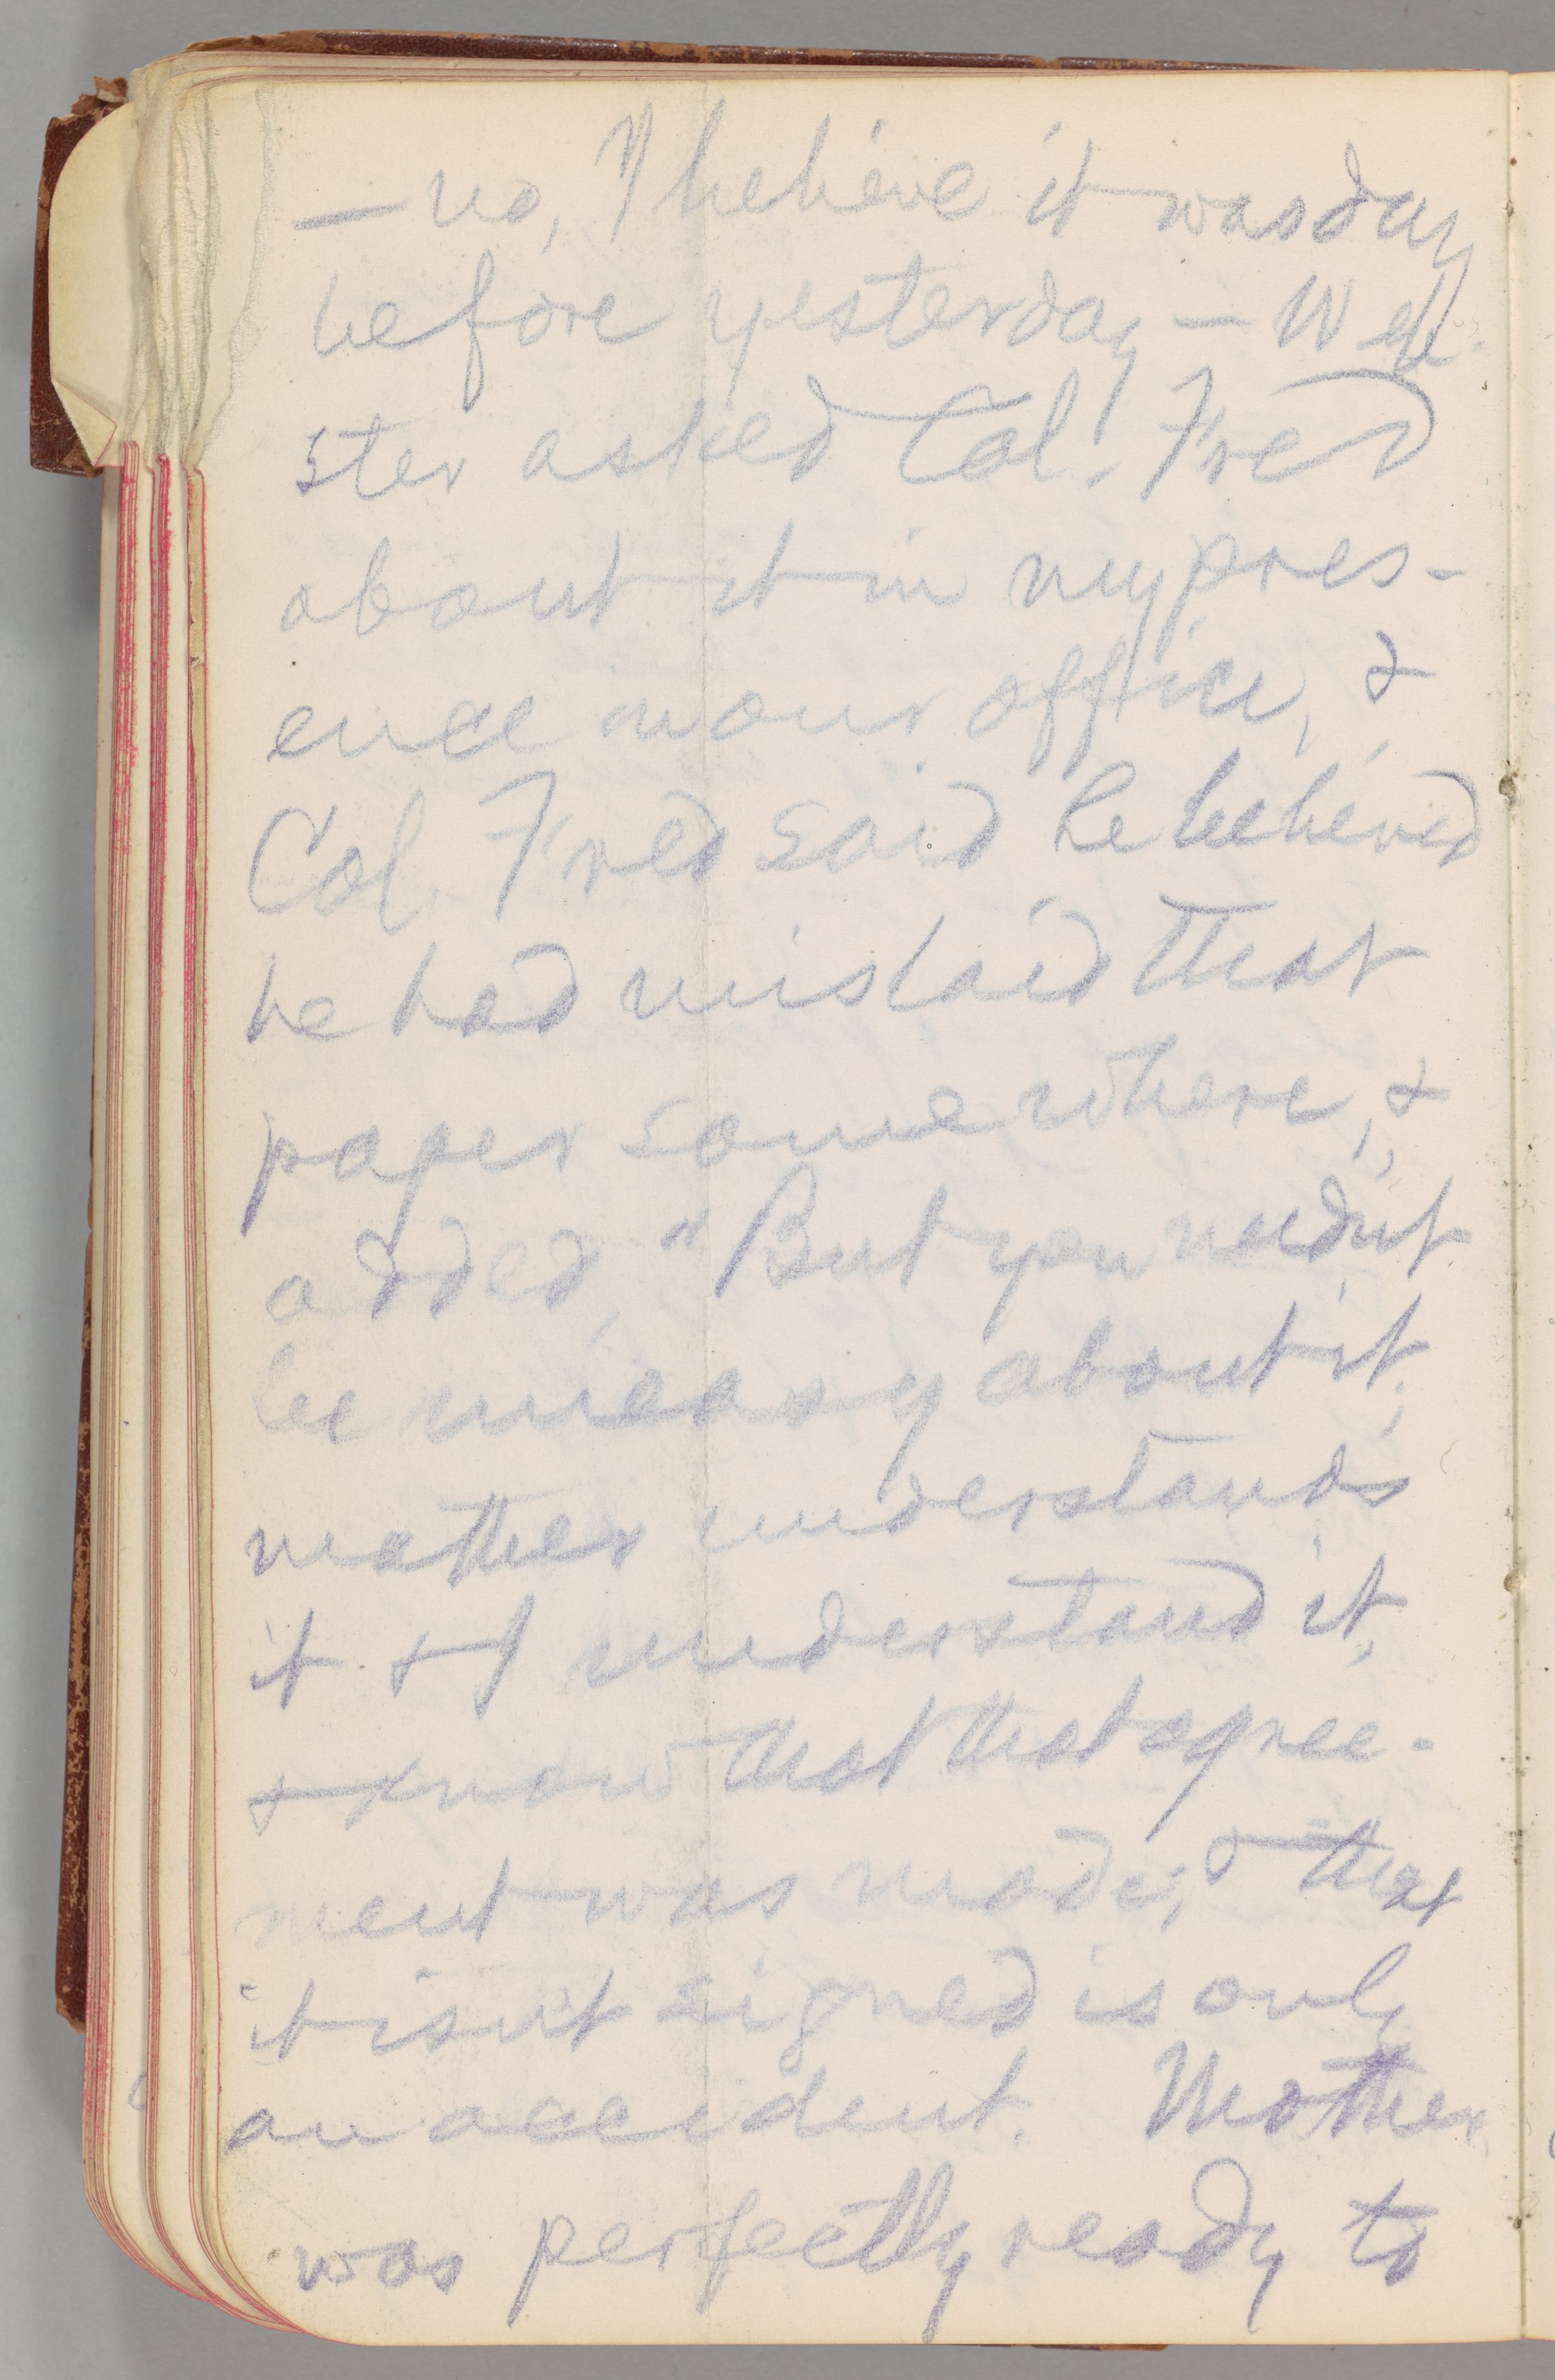 — no, I believe it was day
before yesterday — Web-
ster asked Col. Fred
about it in my pres-
ence in our office, &
Col. Fred said he believed
he had mislaid that
paper somewhere, &
added, "But you needn't
be uneasy about it;
mother understands
it & I understand it,
& know that that agree-
ment was made; & that
it isn't signed is only
an accident. Mother
was perfectly ready to